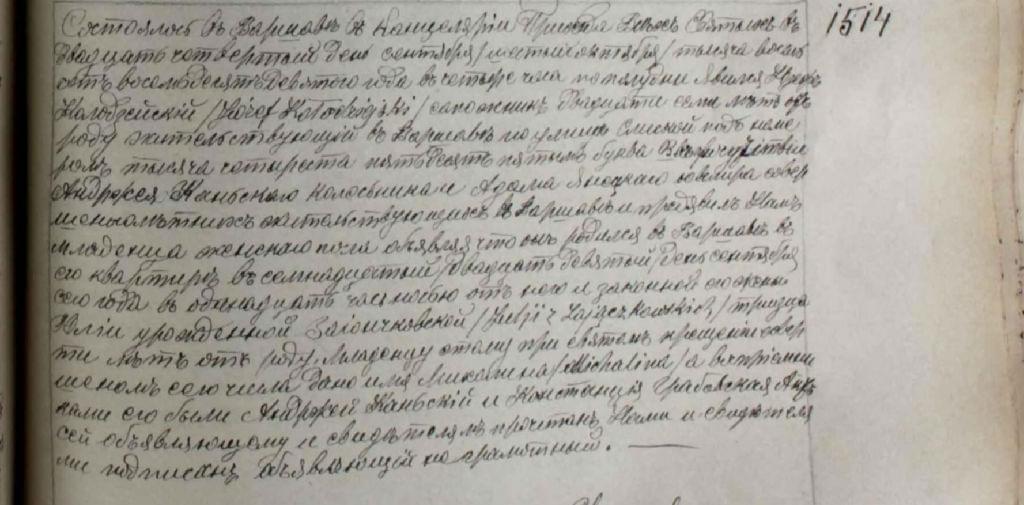 1514
Состоялось въ Варшавѣ въ Канцеляріи Прихода Всѣхъ Святыхъ въ
двадцать четвертый день сентября /шестый октября/ тысяча восемь
сотъ восемьдесятъ девятого года въ четыре часа пополудни явился
Колодзейскій /Józef Kołodziejski/ сапожникъ двадцати семи лѣтъ отъ
роду жительствующій въ Варшавѣ по улицѣ подъ номе
ромъ тысяча четыреста пятьдесятъ пятымъ буква въ присутствіи
Андржея Каньскаго и Адама ювелира совер
шеннолѣтнихъ жительствующихъ въ Варшавѣ и предъявилъ Намъ
младенца женскаго пола объявляя что онъ родился въ Варшавѣ въ
его квартирѣ въ семнадцатый /двадцать девятый/ день сентября
сего года въ одинадцать часовъ ночью отъ него и законной его жены
Юліи урожденной Заіончковской /Julji z Zajączkowskich/ тридца
ти лѣтъ отъ роду. Младенцу этому при святомъ крещеніи совер
шеномъ сего числа дано имя Михалина /Michalina/ а воспріемни
ками его были Андржей Каньскій и Констанція Грабовская. Актъ
сей объявляющому и свидѣтелямъ прочитанъ, Нами и свидѣтеля
ми подписанъ объявляющій не грамотный.